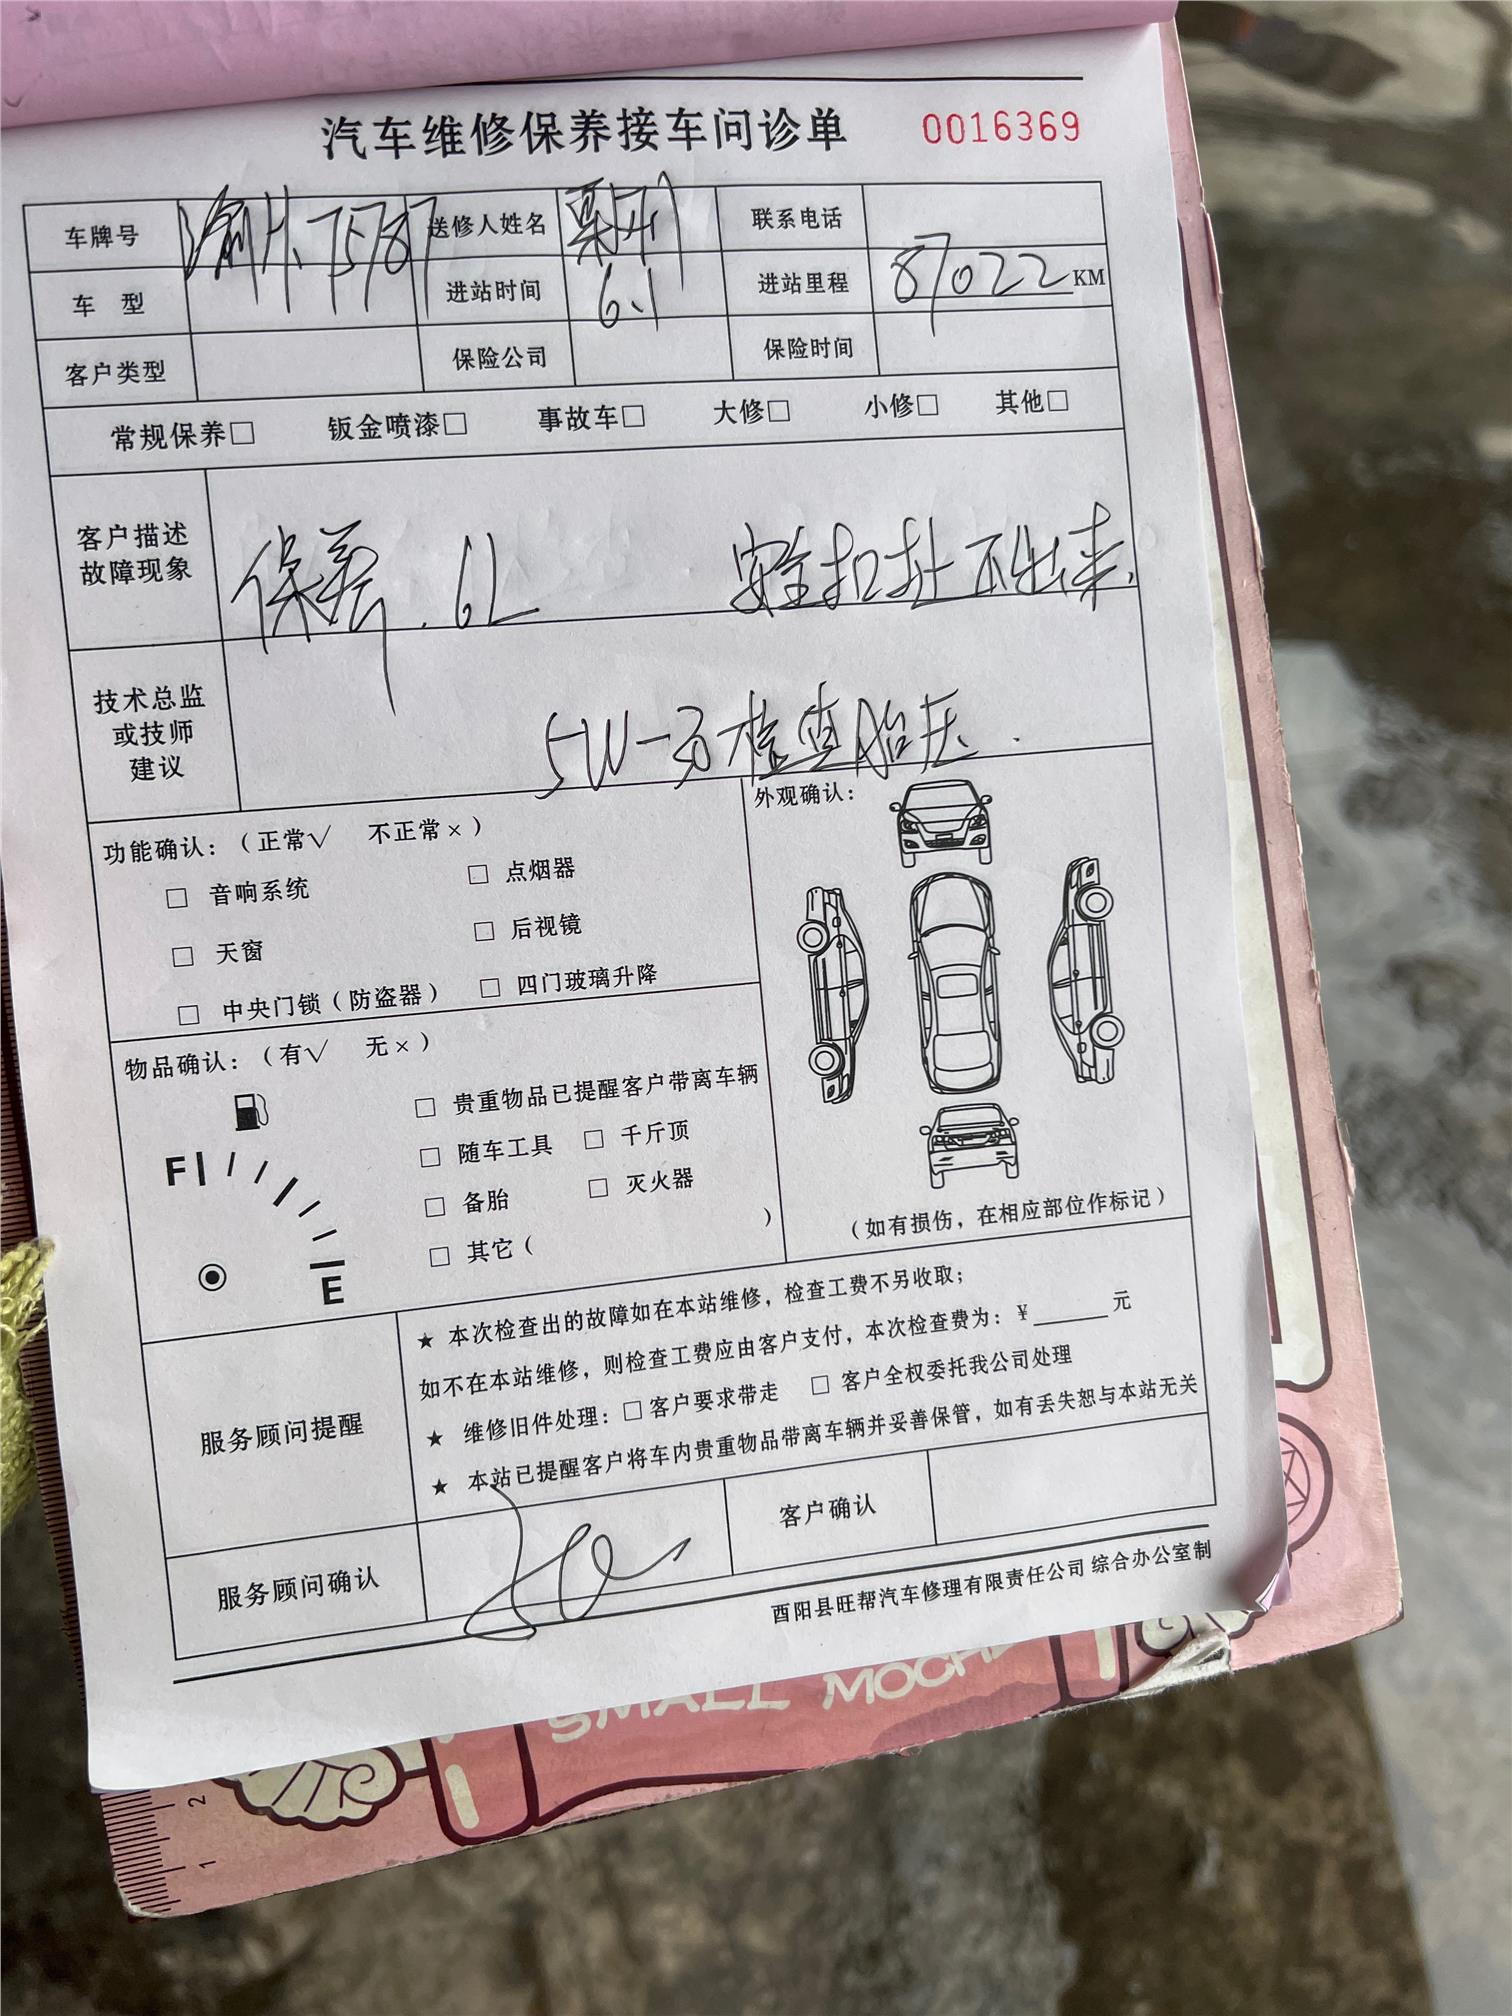 汽车维修保养接车问诊单 0016369
车牌号 送修人姓名 联系电话
车 型 进站时间 6.1 进站里程 87022 KM
客户类型 保险公司 保险时间
常规保养□ 钣金喷漆□ 事故车□ 大修□ 小修□ 其他□
客户描述
故障现象
保养.6L 安全扣扯不出来
技术总监
或技师
建议
5W-30检查胎压.
功能确认:(正常√ 不正常×)
□ 音响系统 □ 点烟器
□ 天窗 □ 后视镜
□ 中央门锁(防盗器) □ 四门玻璃升降
外观确认:
(如有损伤,在相应部位作标记)
物品确认:(有√ 无×)
F
E
□ 贵重物品已提醒客户带离车辆
□ 随车工具 □ 千斤顶
□ 备胎 □ 灭火器
□ 其它( )
服务顾问提醒
★ 本次检查出的故障如在本站维修,检查工费不另收取;
如不在本站维修,则检查工费应由客户支付,本次检查费为:¥______元
★ 维修旧件处理:□客户要求带走 □ 客户全权委托我公司处理
★ 本站已提醒客户将车内贵重物品带离车辆并妥善保管,如有丢失恕与本站无关
服务顾问确认 客户确认
酉阳县旺帮汽车修理有限责任公司 综合办公室制
SMALL MOCHA
2
1